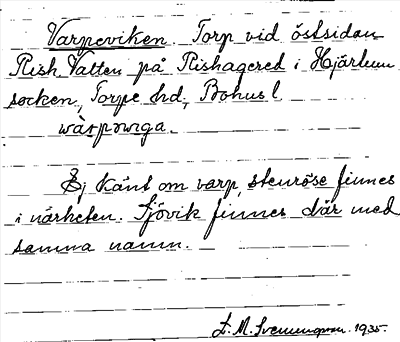 Varpeviken. Torp vid östsidan
Rish. Vatten på Rishagered i Hjärtum
socken, Torpe hd, Bohusl
wàrpwiga.
Ej känt om varp, stenröse finnes
i närheten. Sjövik finnes där med
samma namn.
S. M. Svenungson. 1935.